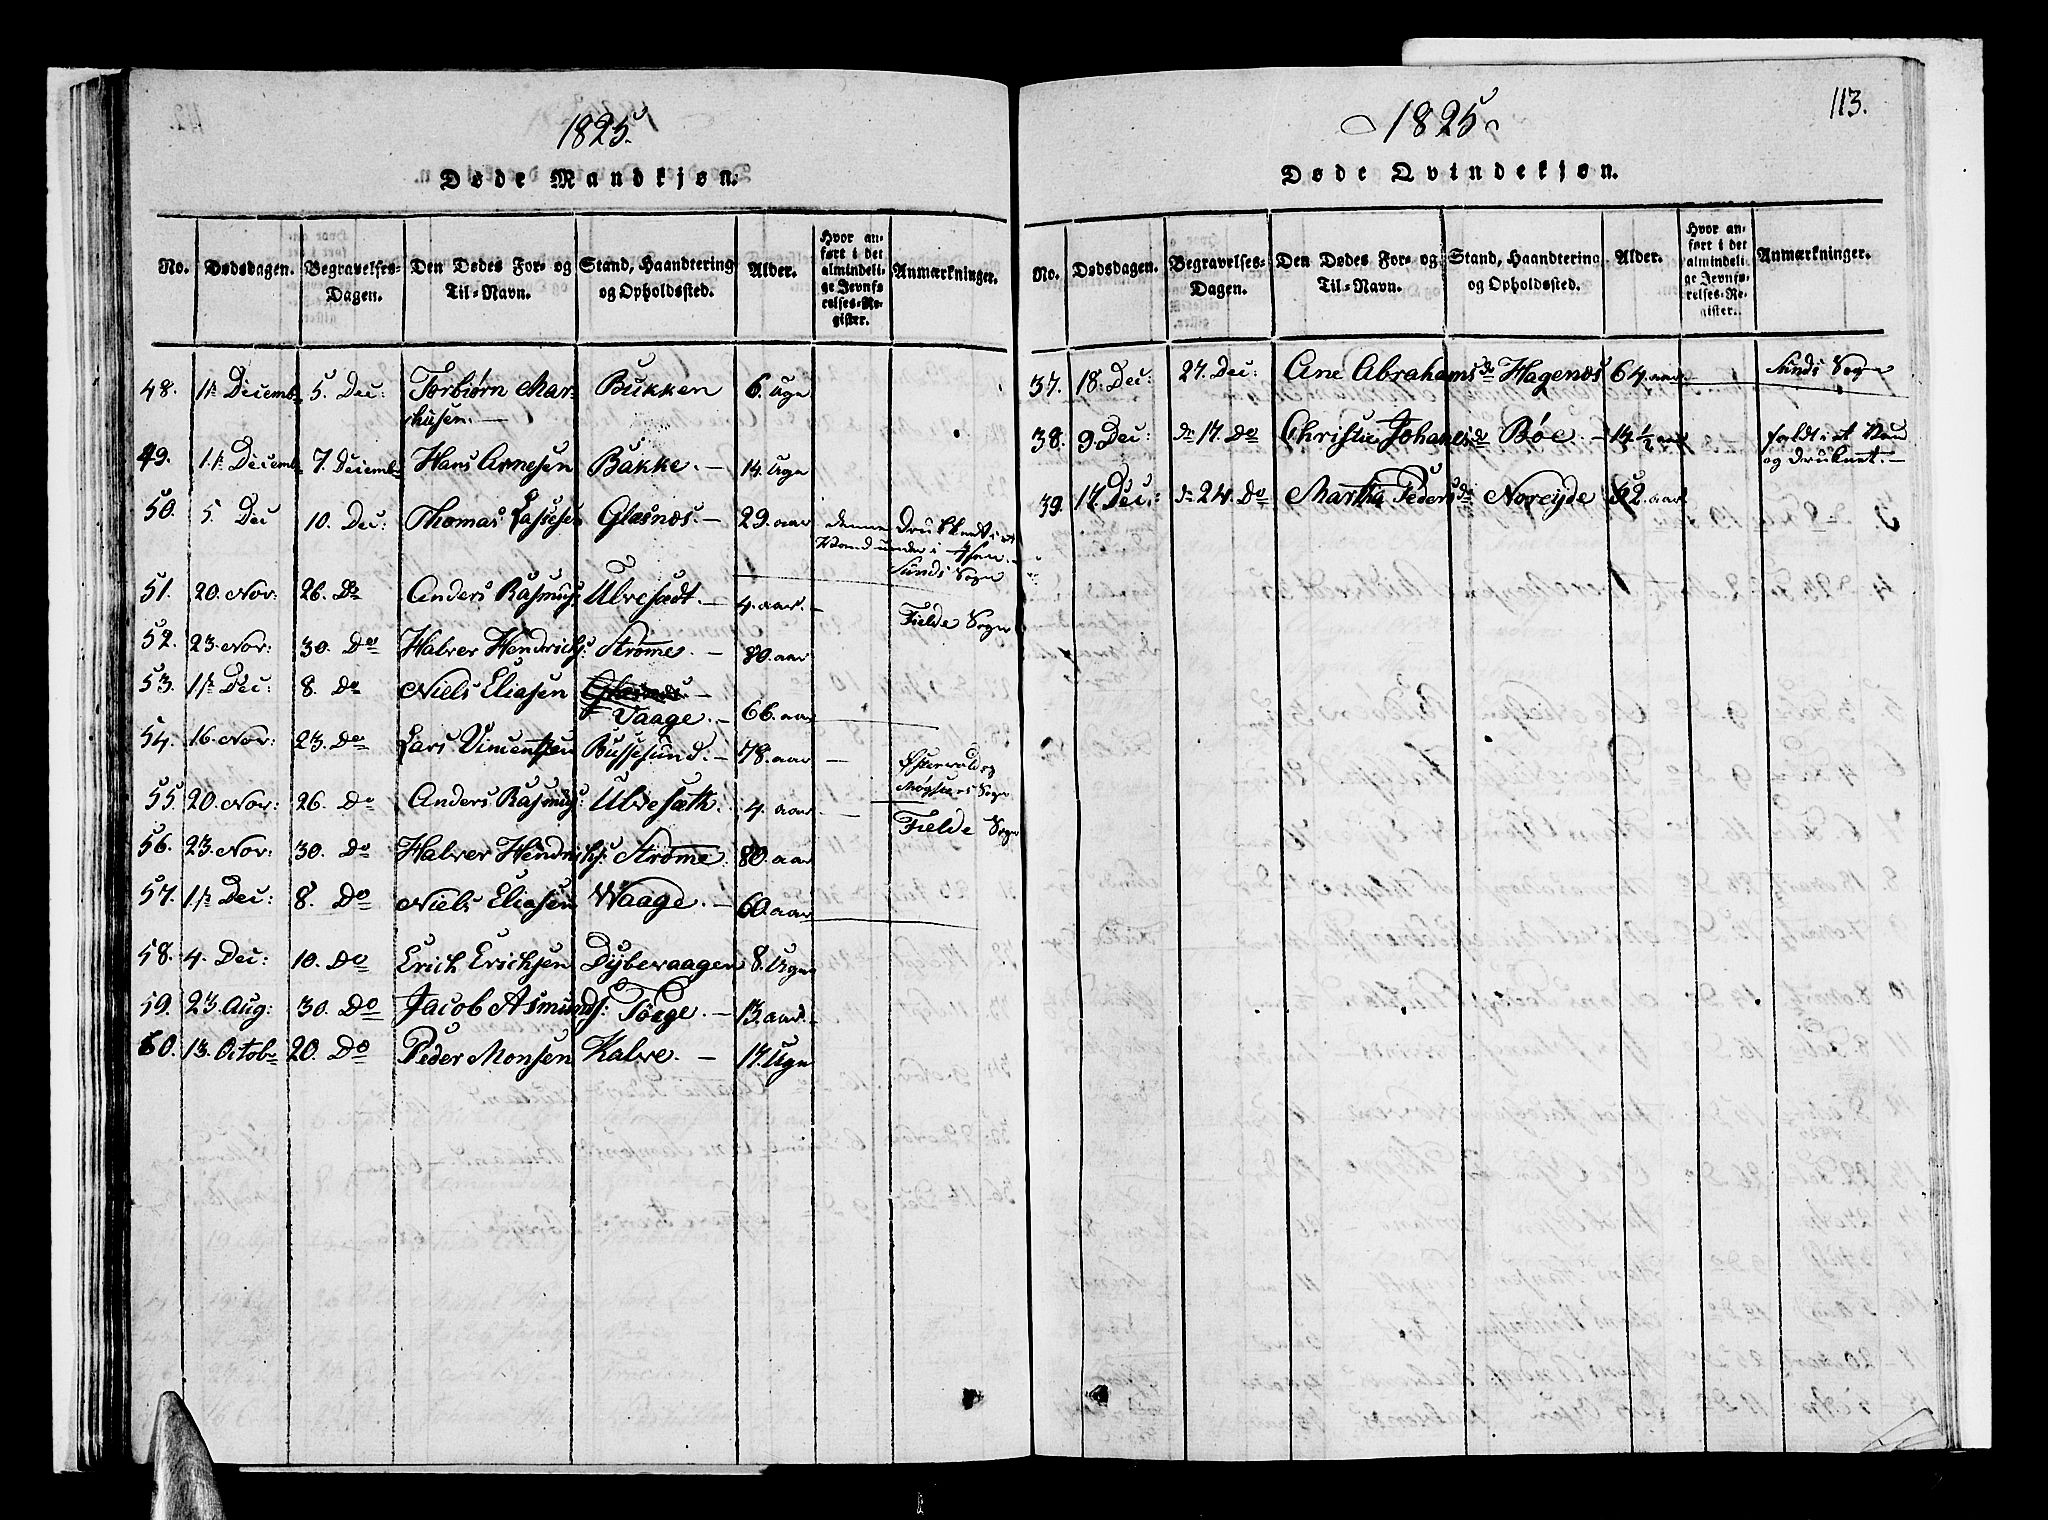 1825.
Døde Mandkjøn.
No. Dødsdagen. Begravelses-Dagen. Den Dødes For- og Til-Navn. Stand, Haandtering og Opholdssted. Alder. Hvor anført i det almindelige Jevnførelses-Register. Anmærkninger.
48. 1te Decemb. 5. Dec: Torbiørn Mar-
kusen. — Bukken 6. Uge
49. 1te Decemb. 7. Decemb. Hans Arnesen Bakke. — 14. Uge
50. 5. Dec 10. Dec: Thomas Lassesen Glesnæs. — 29. aar denne Druknet
Sunds Sogn
51. 20. Nov: 26. Do Anders Rasmus: Ulvesædt. — 4. aar. —
Fielde Sogn
52. 23. Nov: 30. Do Halver Hendrichs: Strømme. — 80. aar
53. 1te Dec: 8. Do Niels Eliasen
Vaage. — 66. aar
54. 16. Nov: 23. Do Lars Vincentsen Bussesund. — 78. aar —
Østervold og
Møgsters Sogn
55. 20. Nov: 26. Do Anders Rasmus: Ulvesæth. 4. aar —
Fielde Sogn
56. 23. Nov: 30. Do Halver Hendrichs: Strømme. 80. aar
57. 1te Dec: 8. Do Niels Eliasen Waage. — 60. aar
58. 4. Dec: 10. Do Erich Erichsen Dybevaagen 8. Uge
59. 23. Aug: 30. Do Jacob Asmunds: Toege. — 13. aar. —
60. 13. Octob. 20. Do Peder Monsen Kalve. — 17. Uge
113.
1825
Døde Qvindekjøn.
No. Dødsdagen. Begravelses-Dagen. Den Dødes For- og Til-Navn. Stand, Haandtering og Opholdssted. Alder. Hvor anført i det almindelige Jevnførelses-Register. Anmærkninger.
37. 18. Dec: 27. Dec: Ane Abrahamsd. Hagenæs 64. aar. Sunds Sogn
38. 9. Dec: 17. Do Christie Johanesd. Bøe. — 1½ aar faldt i et Vand
og druknet. —
39. 17. Dec: 24. Do Martha Pedersd. Noreyde aar